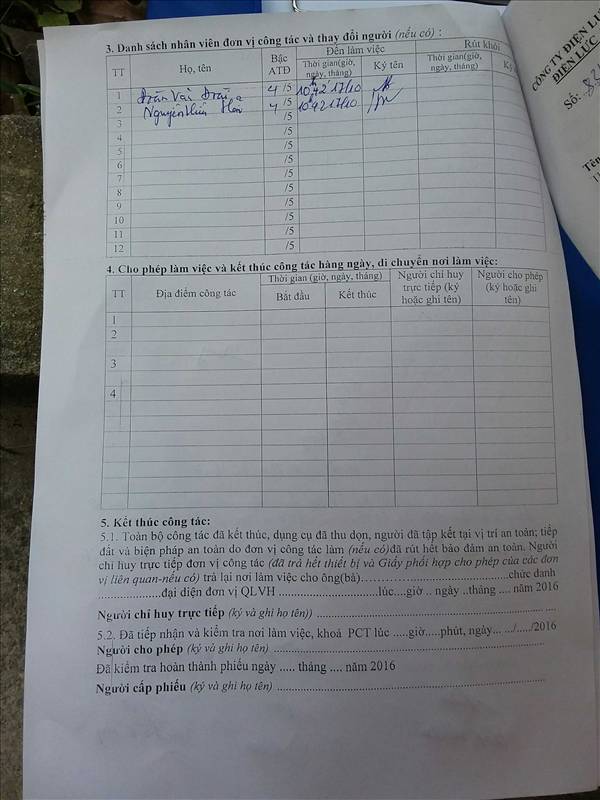 3. Danh sách nhân viên đơn vị công tác và thay đổi người (nếu có) :
TT Họ, tên Bậc ATĐ Đến làm việc Rút khỏi
Thời gian(giờ, ngày, tháng) Ký tên Thời gian(giờ, ngày, tháng) Ký
1 Trần Văn 4 /5 10h42 17/10
2 Nguyễn 4 /5 10h42 17/10
3 /5
4 /5
5 /5
6 /5
7 /5
8 /5
9 /5
10 /5
11 /5
12 /5
4. Cho phép làm việc và kết thúc công tác hàng ngày, di chuyển nơi làm việc:
TT Địa điểm công tác Thời gian (giờ, ngày, tháng) Người chỉ huy trực tiếp (ký hoặc ghi tên) Người cho phép (ký hoặc ghi tên)
Bắt đầu Kết thúc
1
2
3
4
5. Kết thúc công tác:
5.1. Toàn bộ công tác đã kết thúc, dụng cụ đã thu dọn, người đã tập kết tại vị trí an toàn; tiếp
đất và biện pháp an toàn do đơn vị công tác làm (nếu có)đã rút hết bảo đảm an toàn. Người
chỉ huy trực tiếp đơn vị công tác (đã trả hết thiết bị và Giấy phối hợp cho phép của các đơn
vị liên quan-nếu có) trả lại nơi làm việc cho ông(bà)..............................chức danh
....................đại diện đơn vị QLVH ..........................lúc....giờ .. ngày ..tháng .... năm 2016
Người chỉ huy trực tiếp (ký và ghi họ tên)) ..............................
5.2. Đã tiếp nhận và kiểm tra nơi làm việc, khoá PCT lúc .....giờ.....phút, ngày... .../...../2016
Người cho phép (ký và ghi họ tên) ..............................
Đã kiểm tra hoàn thành phiếu ngày ..... tháng .... năm 2016
Người cấp phiếu (ký và ghi họ tên) ..............................
CÔNG TY ĐIỆN LỰ
ĐIỆN LỰC
Số:
Tên